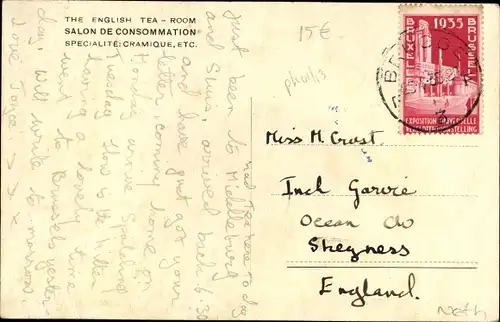 THE ENGLISH TEA - ROOM
SALON DE CONSOMMATION
SPECIALITÉ: CRAMIQUE, ETC.
15€
1935
BRUXELLES
BRUSSEL
EXPOSITION UNIVERSELLE
had tea here to day
Just been to Middleburg
and Sluis, arrived back 6.30
and have just got your
letter, coming home on
Monday arrive Spalding
Tuesday. How is the kitten
having a lovely time
went to Brussels yester-
day. Will write to-morrow.
Love Joyce x x x
Miss M. Crust.
Incl Garvie
Ocean Av
Skegness
England.